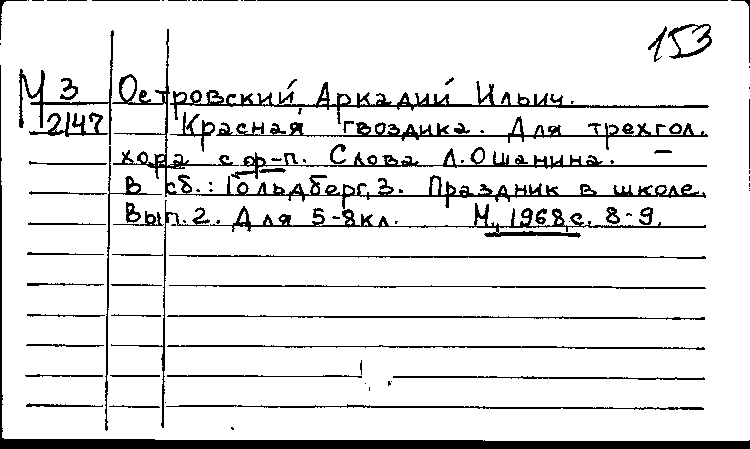 153
М 3
2147
Островский, Аркадий Ильич.
Красная гвоздика. Для трехгол.
хора с ф-п. Слова Л.Ошанина. –
В сб.: Гольдберг, З. Праздник в школе.
Вып. 2. Для 5-8кл. М., 1968, с. 8-9.